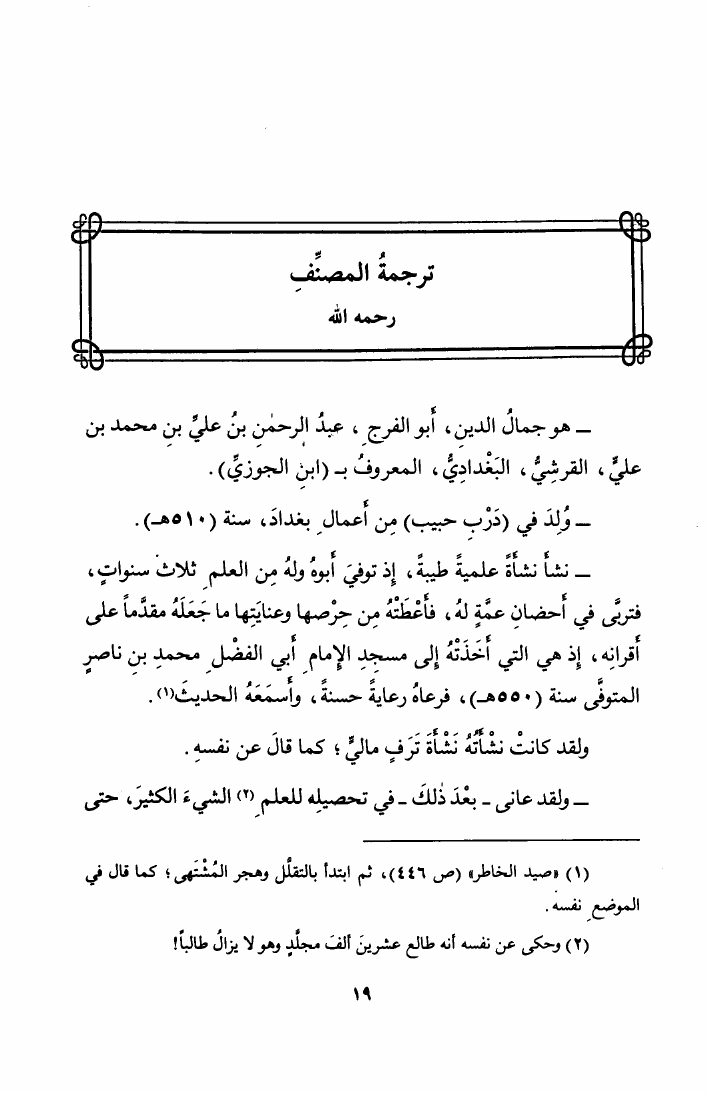 ترجمةُ المصنِّفِ
رحمه الله
ـ هو جمالُ الدينِ، أَبو الفرجِ، عبدُ الرحمٰنِ بنُ عليِّ بنِ محمد بن
عليٍّ، القرشِيُّ، البَغْدادِيُّ، المعروفُ بـ (ابنِ الجوزيِّ).
ـ وُلِدَ في (دَرْبِ حبيب) مِن أَعمالِ بغدادَ، سنة (٥١٠هـ).
ـ نشأَ نشأَةً علميةً طيبةً، إِذ توفيَ أَبوهُ ولهُ مِن العلمِ ثلاثُ سنواتٍ،
فتربَّى في أَحضانِ عمَّةٍ لهُ، فأَعْطَتْهُ مِن حِرْصها وعنايَتِها ما جَعَلَهُ مقدَّماً على
أَقرانِه، إِذ هي التي أَخَذَتْهُ إِلى مسجدِ الإِمامِ أَبي الفضْلِ محمدِ بن ناصرٍ
المتوفَّى سنة (٥٥٠هـ)، فرعاهُ رعايةً حسنةً، وأَسمَعَهُ الحديثَ(١).
ولقد كانتْ نشْأَتُهُ نَشْأَةَ تَرَفٍ ماليٍّ؛ كما قالَ عن نفسهِ.
ـ ولقد عانى ـ بعْدَ ذٰلكَ ـ في تحصيلِه للعلمِ(٢) الشيءَ الكثيرَ، حتى
(١) «صيد الخاطر» (ص ٤٤٦)، ثم ابتدأ بالتقلُّل وهجر المُشْتَهى؛ كما قال في
الموضعِ نفسه.
(٢) وحكى عن نفسه أنه طالع عشرينَ ألفَ مجلَّدٍ وهو لا يزالُ طالباً!
١٩